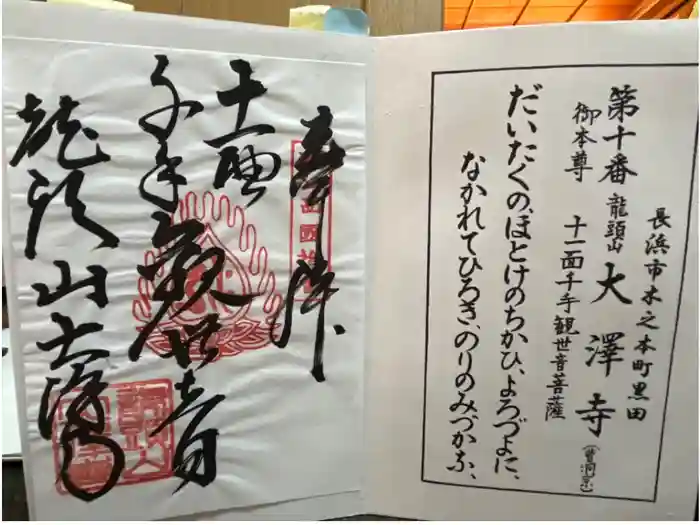 長浜市木之本町黒田
第十番 龍頭山 大澤寺 (曹洞宗)
御本尊 十一面千手観世音菩薩
だいたくの、ほとけのちかひ、よろづよに、
なかれてひろき、のりのみづかな、
奉拝
十一面
千手観世音
龍頭山大澤寺